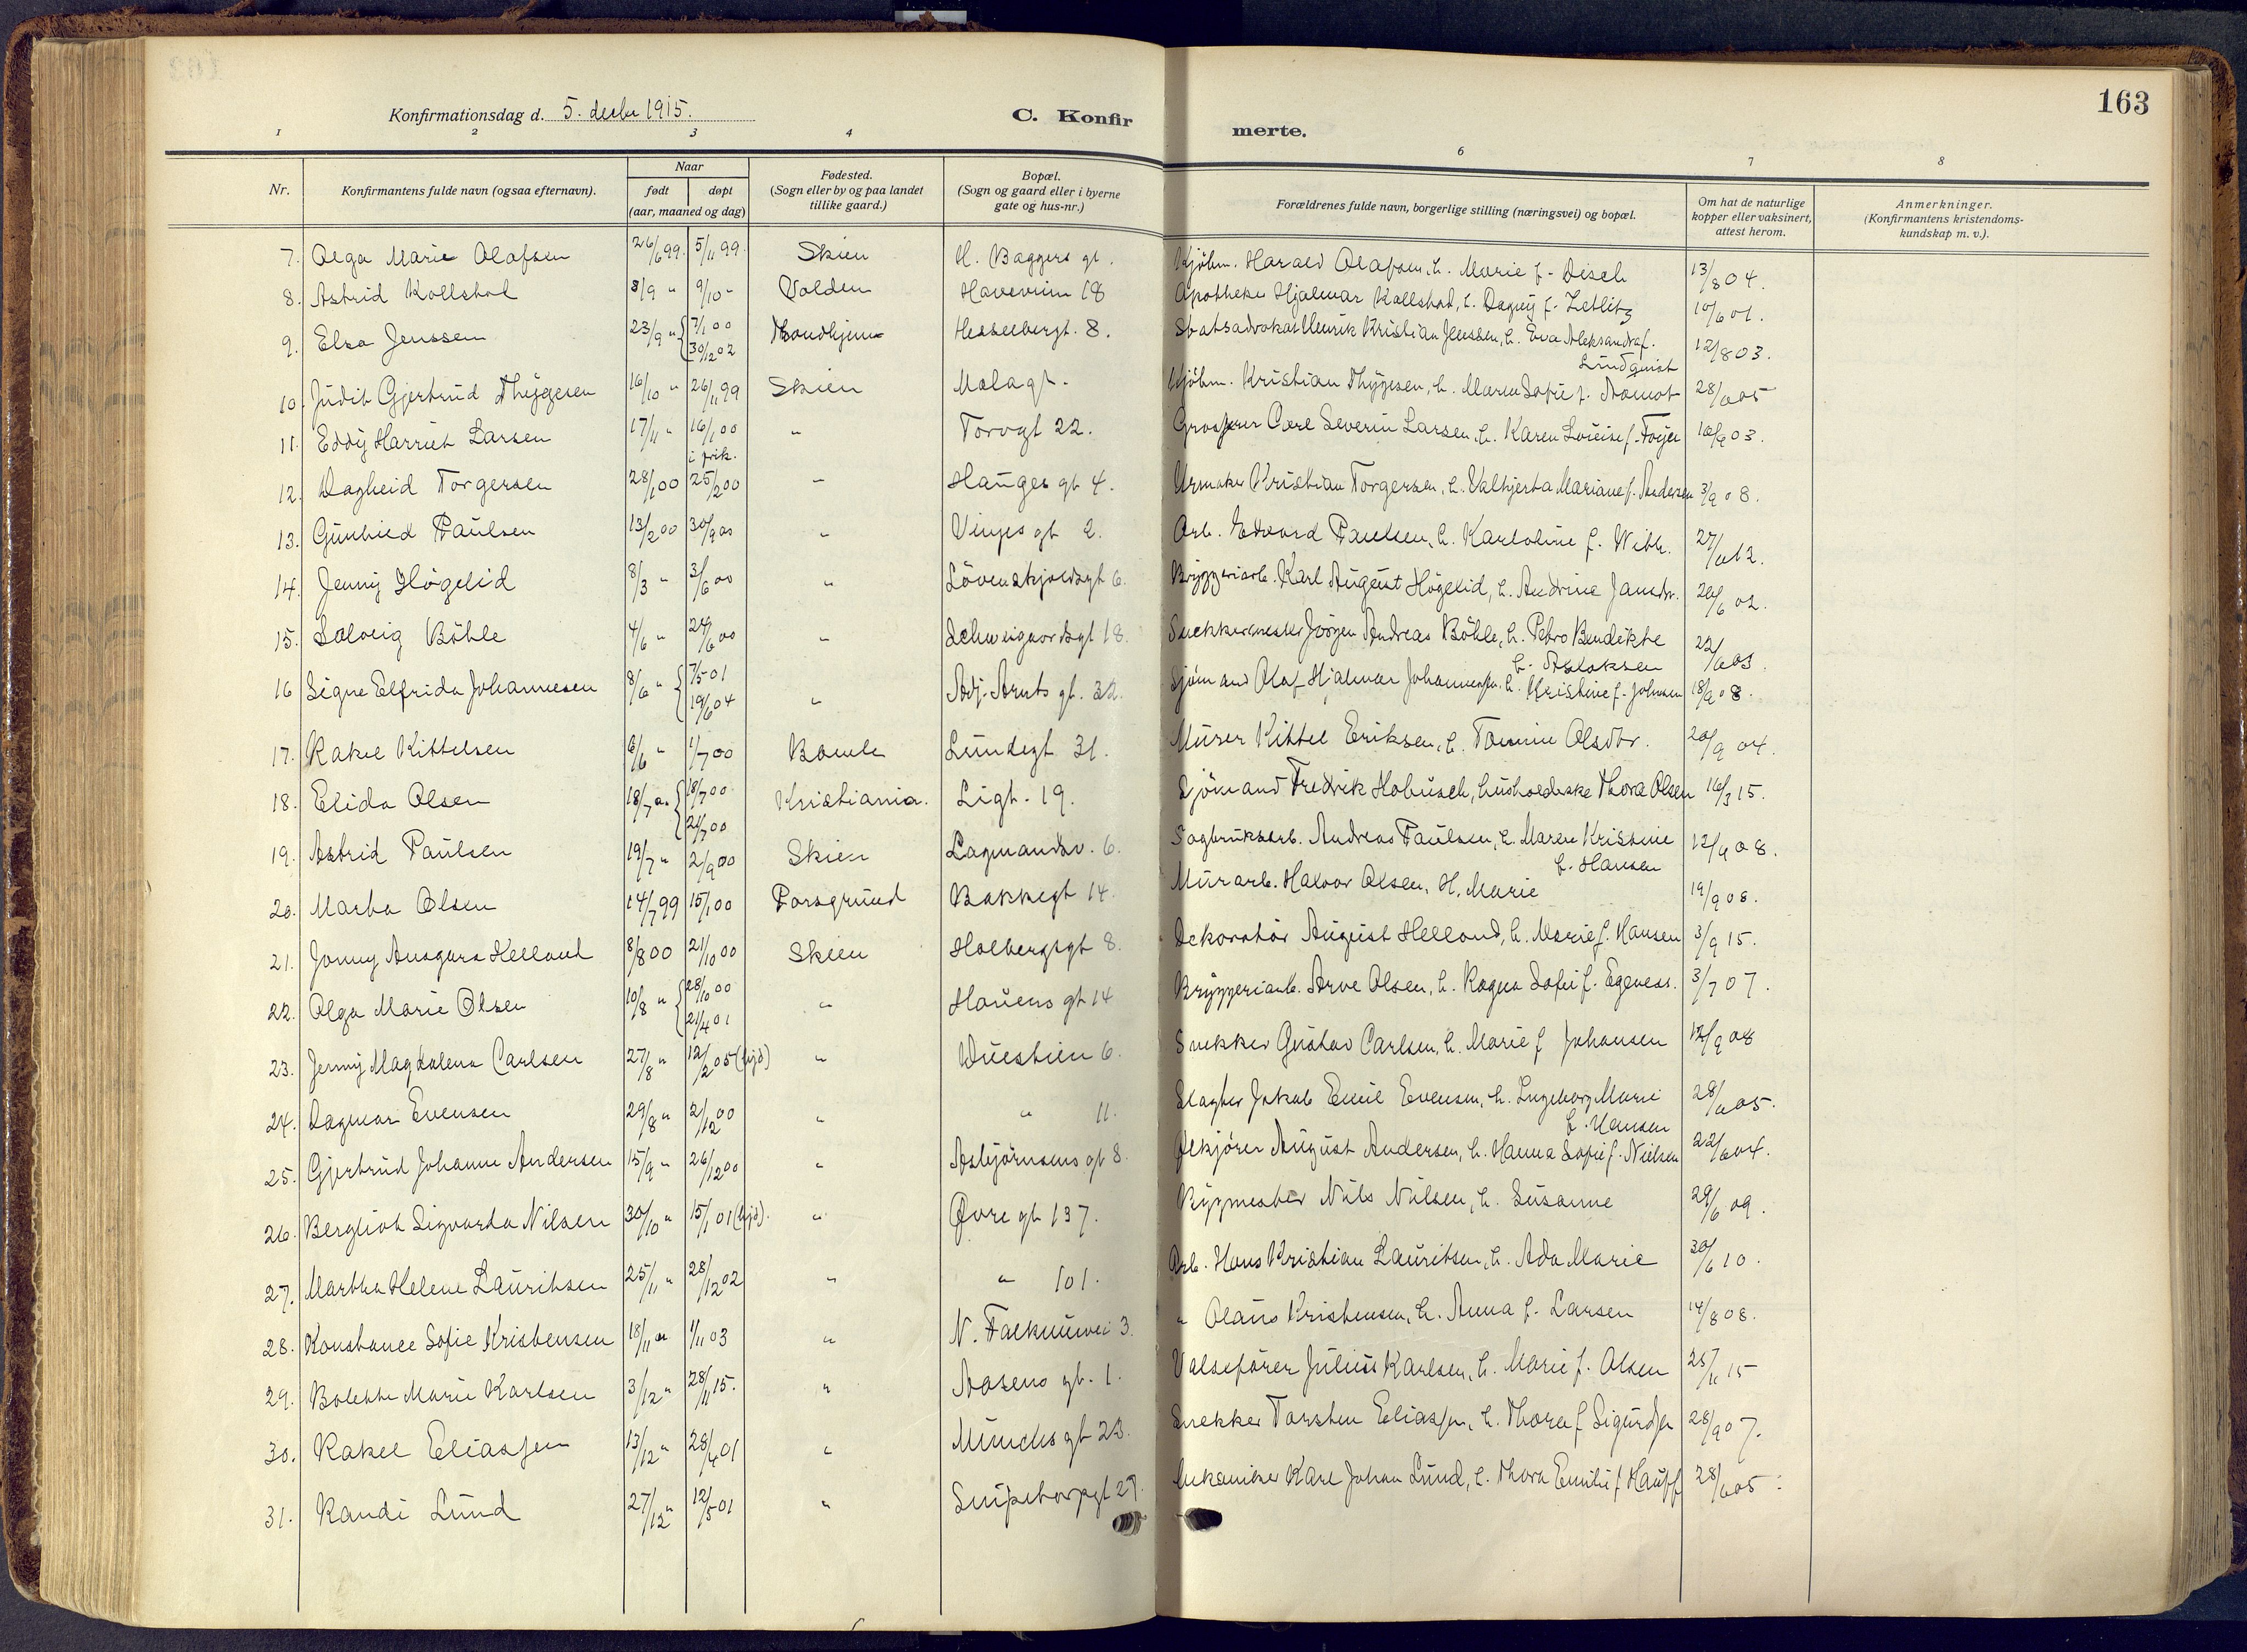 163
Konfirmationsdag d. 5. decbr 1915.
C. Konfir merte.
1 2 3 4 6 7 8
Nr.
Konfirmantens fulde navn (ogsaa efternavn).
Naar
født døpt
(aar, maaned og dag)
Fødested.
(Sogn eller by og paa landet
tillike gaard.)
Bopæl.
(Sogn og gaard eller i byerne
gate og hus-nr.)
Forældrenes fulde navn, borgerlige stilling (næringsvei) og bopæl.
Om hat de naturlige
kopper eller vaksinert,
attest herom.
Anmerkninger.
(Konfirmantens kristendoms-
kundskap m. v.).
7. Olga Marie Olafsen 26/6 99. 5/11 99. Skien H. Baggers gt. Kjøbm. Harald Olafsen, h. Marie f. Disch 13/8 04.
8. Astrid Kollstad 8/9 " 9/10 " Volden 18 Apotheker Hjalmar Kollstad, h. Dagny f. Zetlitz 10/6 01.
9. Elsa Jenssen 23/9 " { 7/1 00 30/2 02 Trondhjem Hesselbergt. 8. Statsadvokat Henrik Kristian Jenssen, h. Eva Aleksandra f. Lundquist 12/8 03.
10. Judit Gjertrud Thygesen 16/10 " 26/11 99 Skien Molagt. Kjøbm. Kristian Thygesen, h. Maren Sofie f. Aamot 28/6 05
11. Eddy Harriet Larsen 17/11 " 16/1 00 i frik. " Torvgt 22. Grosserer Carl Severin Larsen, h. Karen Lovise f. Foyer 18/9 03.
12. Dagheid Torgersen 28/1 00 25/2 00 " Hauges gt 4. Urmaker Kristian Torgersen, h. Valhjerta Mariane f. Andersen 3/9 08.
13. Gunhild Paulsen 13/2 00 30/9 00 " Vinjes gt 2. Arb. Edvard Paulsen, h. Karloline f. Witb. 27/6 12.
14. Jenny Høgelid 8/3 " 3/6 00 " Løvenskjoldsgt 6. Bryggeriarb. Karl August Høgelid, h. Andrine Jansdr. 20/6 02.
15. Solveig Bøhle 4/6 " 24/6 00 " Schweigaardsgt 18. Snekkermester Jørgen Andreas Bøhle, h. Petra Bendikte f. Aslaksen 22/6 03.
16 Signe Elfrida Johannesen 8/6 " { 7/5 01 19/6 04 " Adj. Arnts gt. 32. Sjømand Olaf Hjalmar Johannesen, h. Kristine f. Johnsen 18/9 08.
17. Rakel Kittelsen 6/6 " 1/7 00 Bamle Lundegt 31. Murer Kittel Eriksen, h. Tomine Olsdtr. 20/9 04.
18. Elida Olsen 18/7 00 { 18/7 00 21/7 00 Kristiania. Ligt. 19. Sjømand Fredrik Hobusch, husholderske Thora Olsen 16/3 15.
19. Astrid Paulsen 19/7 " 2/9 00 Skien Lagmandsv. 6. Sagbruksarb. Andreas Paulsen, h. Maren Kristine f. Hansen 12/9 08.
20. Marta Olsen 14/7 99 15/1 00 Porsgrund Bakkegt 14. Murarb. Halvor Olsen, H. Marie 19/9 08.
21. Jonny Ansgara Helland 8/8 00 21/10 00 Skien Holbergsgt 8. Dekoratør August Helland, h. Marie f. Hansen 3/9 15.
22. Olga Marie Olsen 10/8 " { 28/10 00 21/4 01 " Hauens gt 14 Bryggeriarb. Arve Olsen, h. Ragna Sofie f. Egeness. 3/7 07.
23. Jenny Magdalena Carlsen 27/8 " 12/2 05 (hjd) " Duestien 6. Snekker Gustav Carlsen, h. Marie f Johansen 12/9 08
24. Dagmar Evensen 29/8 " 2/12 00 " " 11. Slagter Jakob Emil Evensen, h. Ingeborg Marie f. Hansen 28/6 05.
25. Gjertrud Johanne Andersen 15/9 " 26/12 00 " Asbjørnsens gt 8. Ølkjører August Andersen, h. Hanna Sofie f. Nielsen 22/6 04.
26. Bergliot Sigvarda Nilsen 30/10 " 15/1 01 (hjd). " Øvre gt 137. Bygmester Nils Nilsen, h. Susanne 29/6 09.
27. Martha Helene Lauritsen 25/11 " 28/12 02 " " 101. Arb. Hans Kristian Lauritsen, h. Ada Marie 30/6 10.
28. Konstance Sofie Kristensen 18/11 00 1/11 03 " N. Falkumvei 3. " Olaus Kristensen, h. Anna f. Larsen 14/8 08.
29. Bolette Marie Karlsen 3/12 " 28/11 15. " Aasens gt. 1. Valsefører Julius Karlsen, h. Marie f. Olsen 25/11 15
30. Rakel Eliassen 13/12 " 28/4 01 " Munchs gt 22. Snekker Torsten Eliassen, h. Thora f Sigurdsen 28/9 07.
31. Randi Lund 27/12 " 12/5 01 " Snipetorpgt 27. Mekaniker Karl Johan Lund, h. Thora Emilie f Hauff 28/6 05.